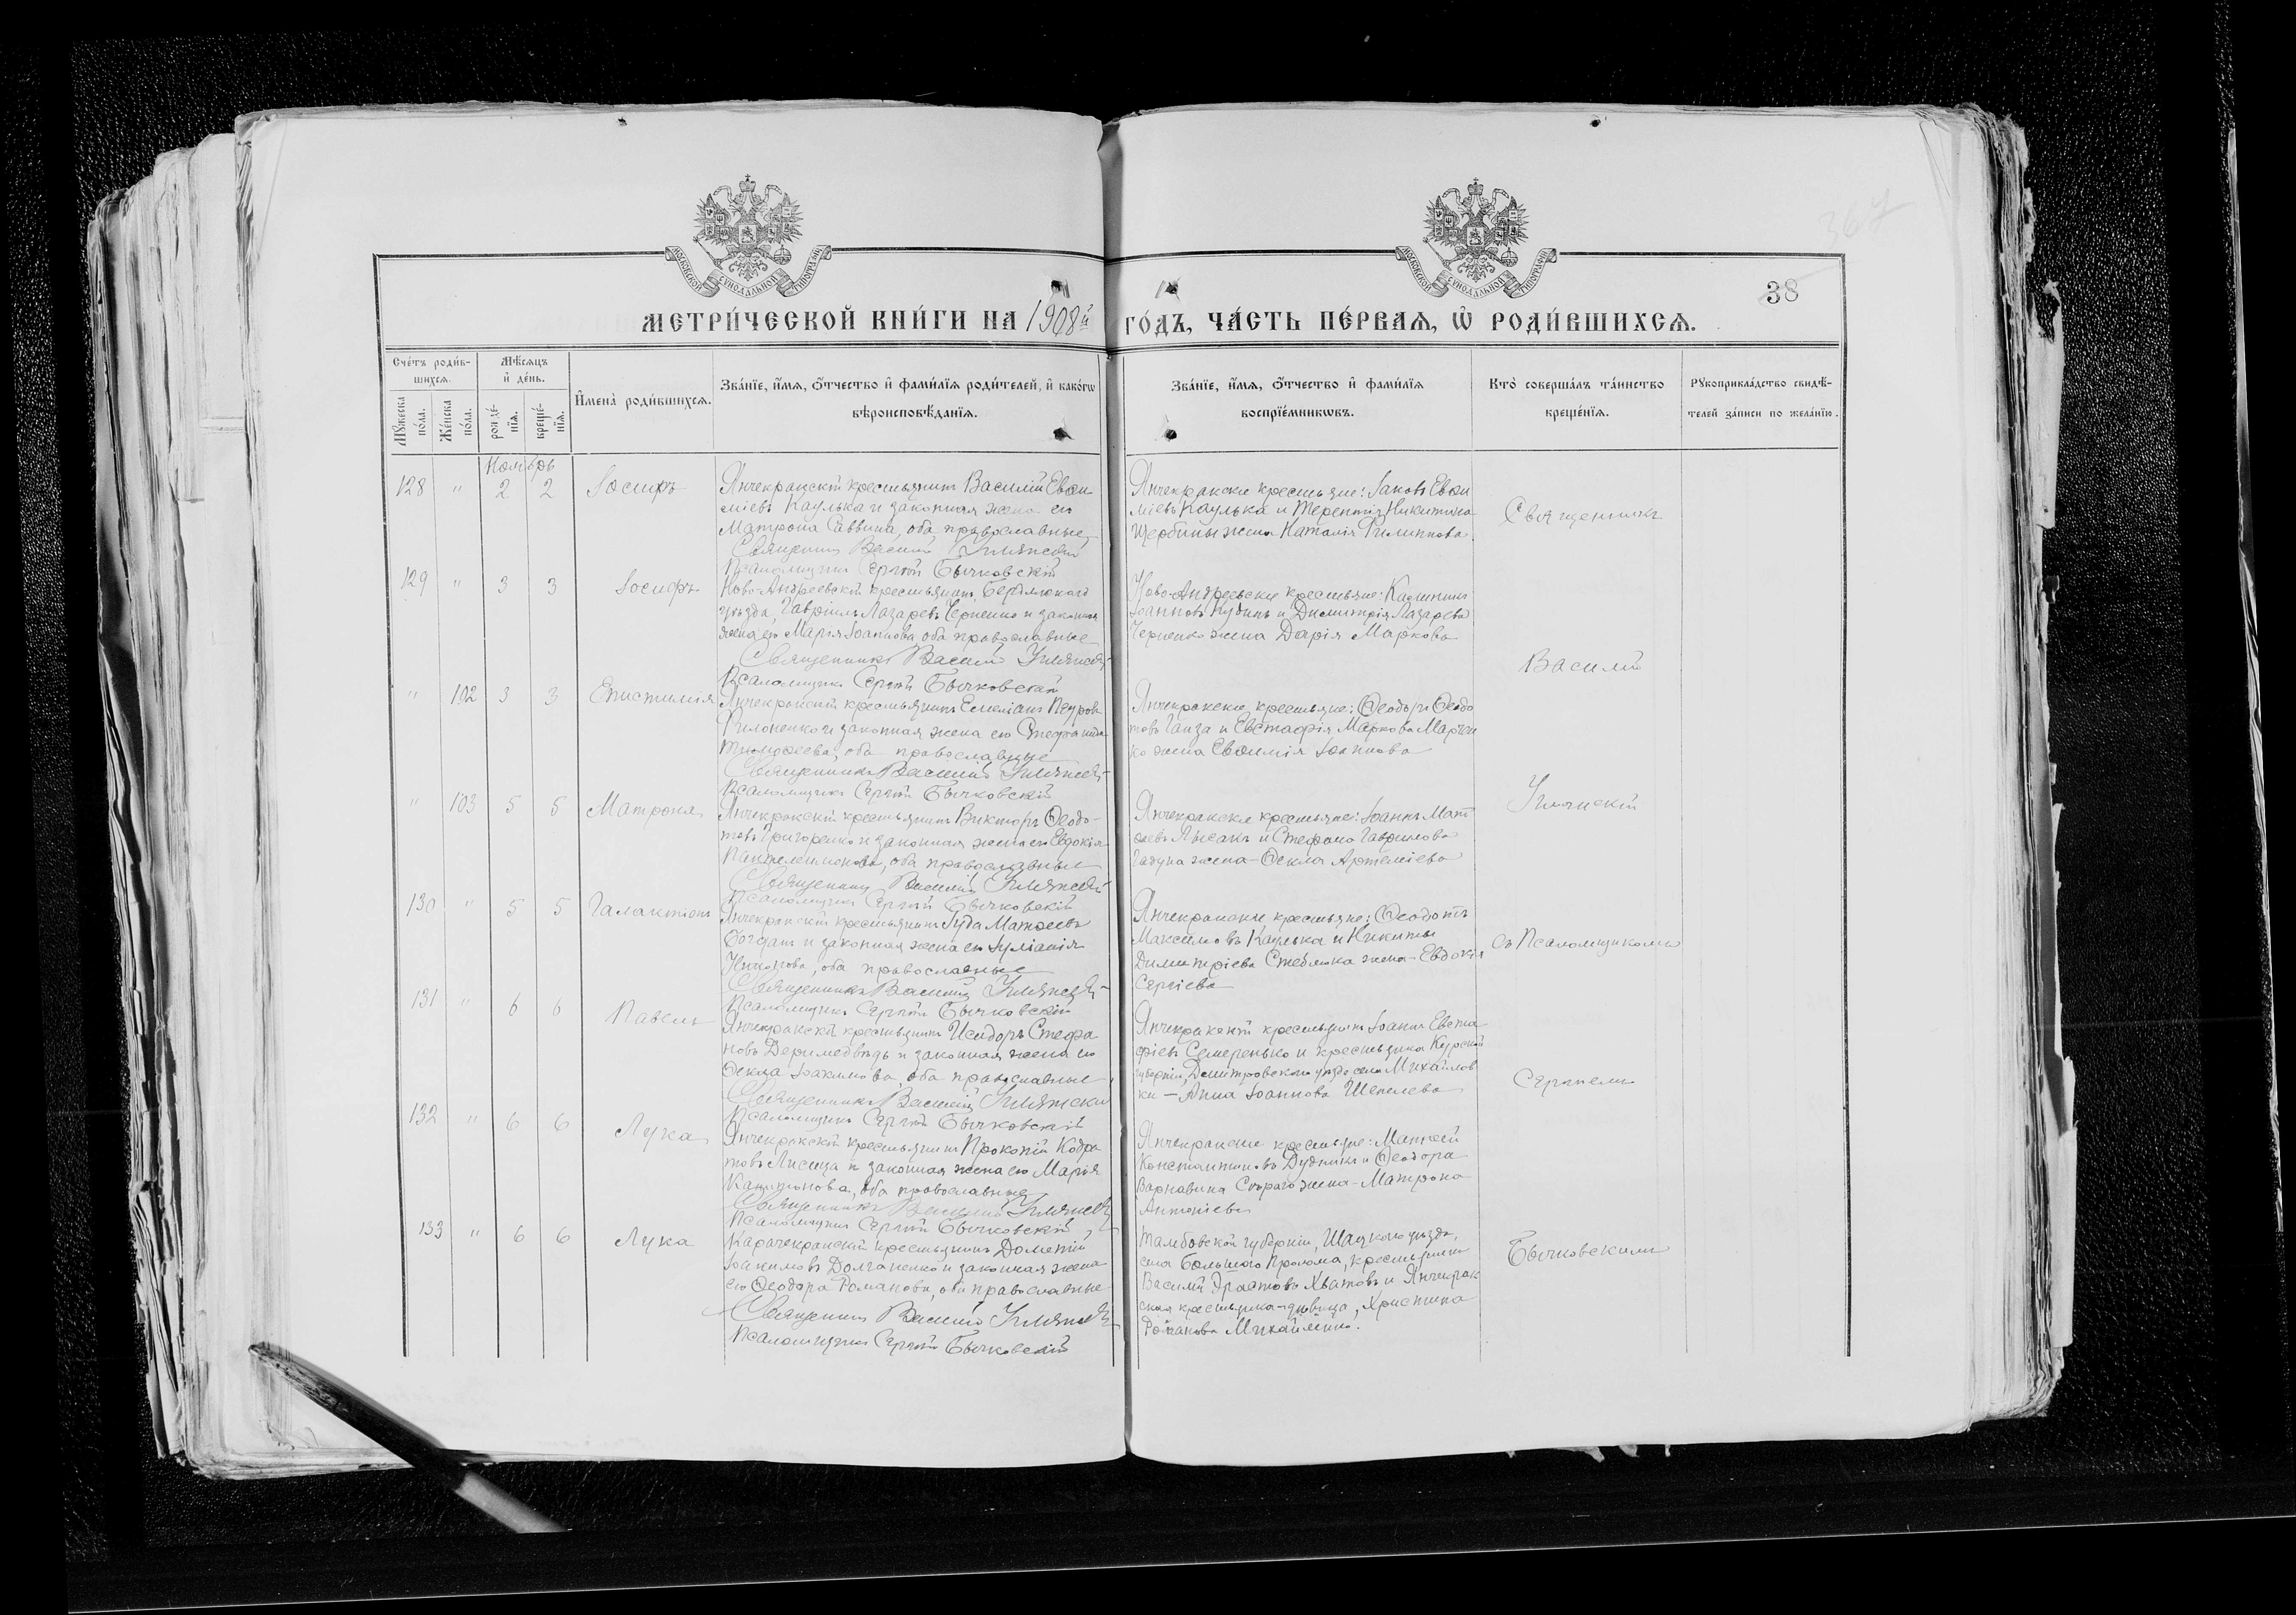 367
38
МОСКОВСКОЙ СѴНОДАЛЬНОЙ ТИПОГРАФІИ
МОСКОВСКОЙ СѴНОДАЛЬНОЙ ТИПОГРАФІИ
МЕТРИ́ЧЕСКОЙ КНИ́ГИ НА 1908й ГО́ДЪ, ЧА́СТЬ ПЕ́РВАЯ, Ѡ҆ РОДИ́ВШИХСѦ.
Сче́тъ роди́в-
шихсѧ.
Мꙋ́жеска по́ла.
Же́нска по́ла.
Мѣ́сѧцъ
и҆ де́нь.
рожде́-нїѧ.
креще́-нїѧ.
И҆мена̀ роди́вшихсѧ.
Зва́нїе, и҆́мѧ, ѻ҆́тчество и҆ фами́лїѧ роди́телей, и҆ како́гѡ
вѣроисповѣ́данїѧ.
Зва́нїе, и҆́мѧ, ѻ҆́тчество и҆ фами́лїѧ
воспрїе́мникѡвъ.
Кто̀ соверша́лъ та́инство
креще́нїѧ.
Рꙋкоприкла́дство свидѣ́-
телей за́писи по жела́нїю.
Ноябрь
128 " 2 2 Іосифъ
Янчекракскій крестьянинъ Василій Евѳи
міевъ Каулька и законная жена его
Матрона Саввина, оба православные
Священникъ Василій
Псаломщикъ Сергій Бычковскій
Янчекракскіе крестьяне: Іаковъ Евѳи
міевъ Каулька и Терентія Никитина
Щербины жена Наталія Филиппова
129 " 3 3 Іосифъ
Ново-Андреевскій крестьянинъ, Бердянскаго
уѣзда, Гавріилъ Лазаревъ Черненко и законная
жена его Марія Іоаннова оба православные
Священникъ Василій
Псаломщикъ Сергій Бычковскій
Ново-Андреевскіе крестьяне: Каллиникъ
Іоанновъ и Димитрія Лазарева
Черненко жена Дарія Маркова
" 102 3 3 Епистимія
Янчекракскій крестьянинъ Емеліанъ Петровъ
Филоненко и законная жена его Стефанида
Тимоѳеева, оба православные
Священникъ Василій
Псаломщикъ Сергій Бычковскій
Янчекракскіе крестьяне: Ѳеодоръ Ѳеодо
товъ Ганза и Евстафія Маркова Марчен
ко жена Евѳимія Іоаннова
" 103 5 5 Матрона
Янчекракскій крестьянинъ Викторъ Ѳеодо-
товъ Григоренко и законная жена его Евдокія
Пантелеимонова, оба православные
Священникъ Василій
Псаломщикъ Сергій Бычковскій
Янчекракскіе крестьяне: Іоаннъ Мат
ѳеевъ Лысакъ и Стефана Гавриилова
жена - Ѳекла Артеміева
130 " 5 5 Галактіонъ
Янчекракскій крестьянинъ Іуда Матѳеевъ
Богданъ и законная жена его Іуліанія
оба православные
Священникъ Василій
Псаломщикъ Сергій Бычковскій
Янчекракскіе крестьяне: Ѳеодотъ
Максимовъ Каулька и Никиты
Димитріева Стеблюка жена - Евдокія
Сергіева
131 " 6 6 Павелъ
Янчекракскій крестьянинъ Исидоръ Стефа
новъ Деримедвѣдь и законная жена его
Ѳекла Іоакимова, оба православные
Священникъ Василій
Псаломщикъ Сергій Бычковскій
Янчекракскій крестьянинъ Іоаннъ Евста
фіевъ Семеренько и крестьянка Курской
губерніи, Дмитровскаго уѣзда села Михайлов
ки - Анна Іоаннова Шепелева
132 " 6 6 Лука
Янчекракскій крестьянинъ Прокопій Кодра
товъ Лисица и законная жена его Марія
Капитонова, оба православные
Священникъ Василій
Псаломщикъ Сергій Бычковскій
Янчекракскіе крестьяне: Матѳей
Константиновъ Дудникъ и Ѳеодора
Варнавина жена - Матрона
Антоніева
133 " 6 6 Лука
Карачекракскій крестьянинъ Дометій
Іоакимовъ Долганенко и законная жена
его Ѳеодора Романова, оба православные
Священникъ Василій
Псаломщикъ Сергій Бычковскій
Тамбовской губерніи, Шацкаго уѣзда,
села Большого Пролома, крестьянинъ
Василій Эрастовъ Хватовъ и Янчекрак
ская крестьянка-дѣвица, Христина
Романова Михайленко.
Священникъ
Василій
съ Псаломщикомъ
Сергіемъ
Бычковскимъ